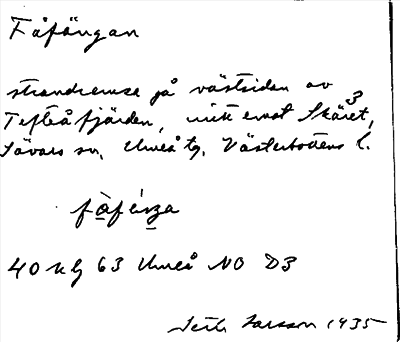 Fåfängan
strandremsa på västsidan av
Tefteåfjärden, mitt emot Skäret,³
Sävars sn, Umeå tg. Västerbottens l.
40 kg 63 Umeå NO D3
Larsson 1935